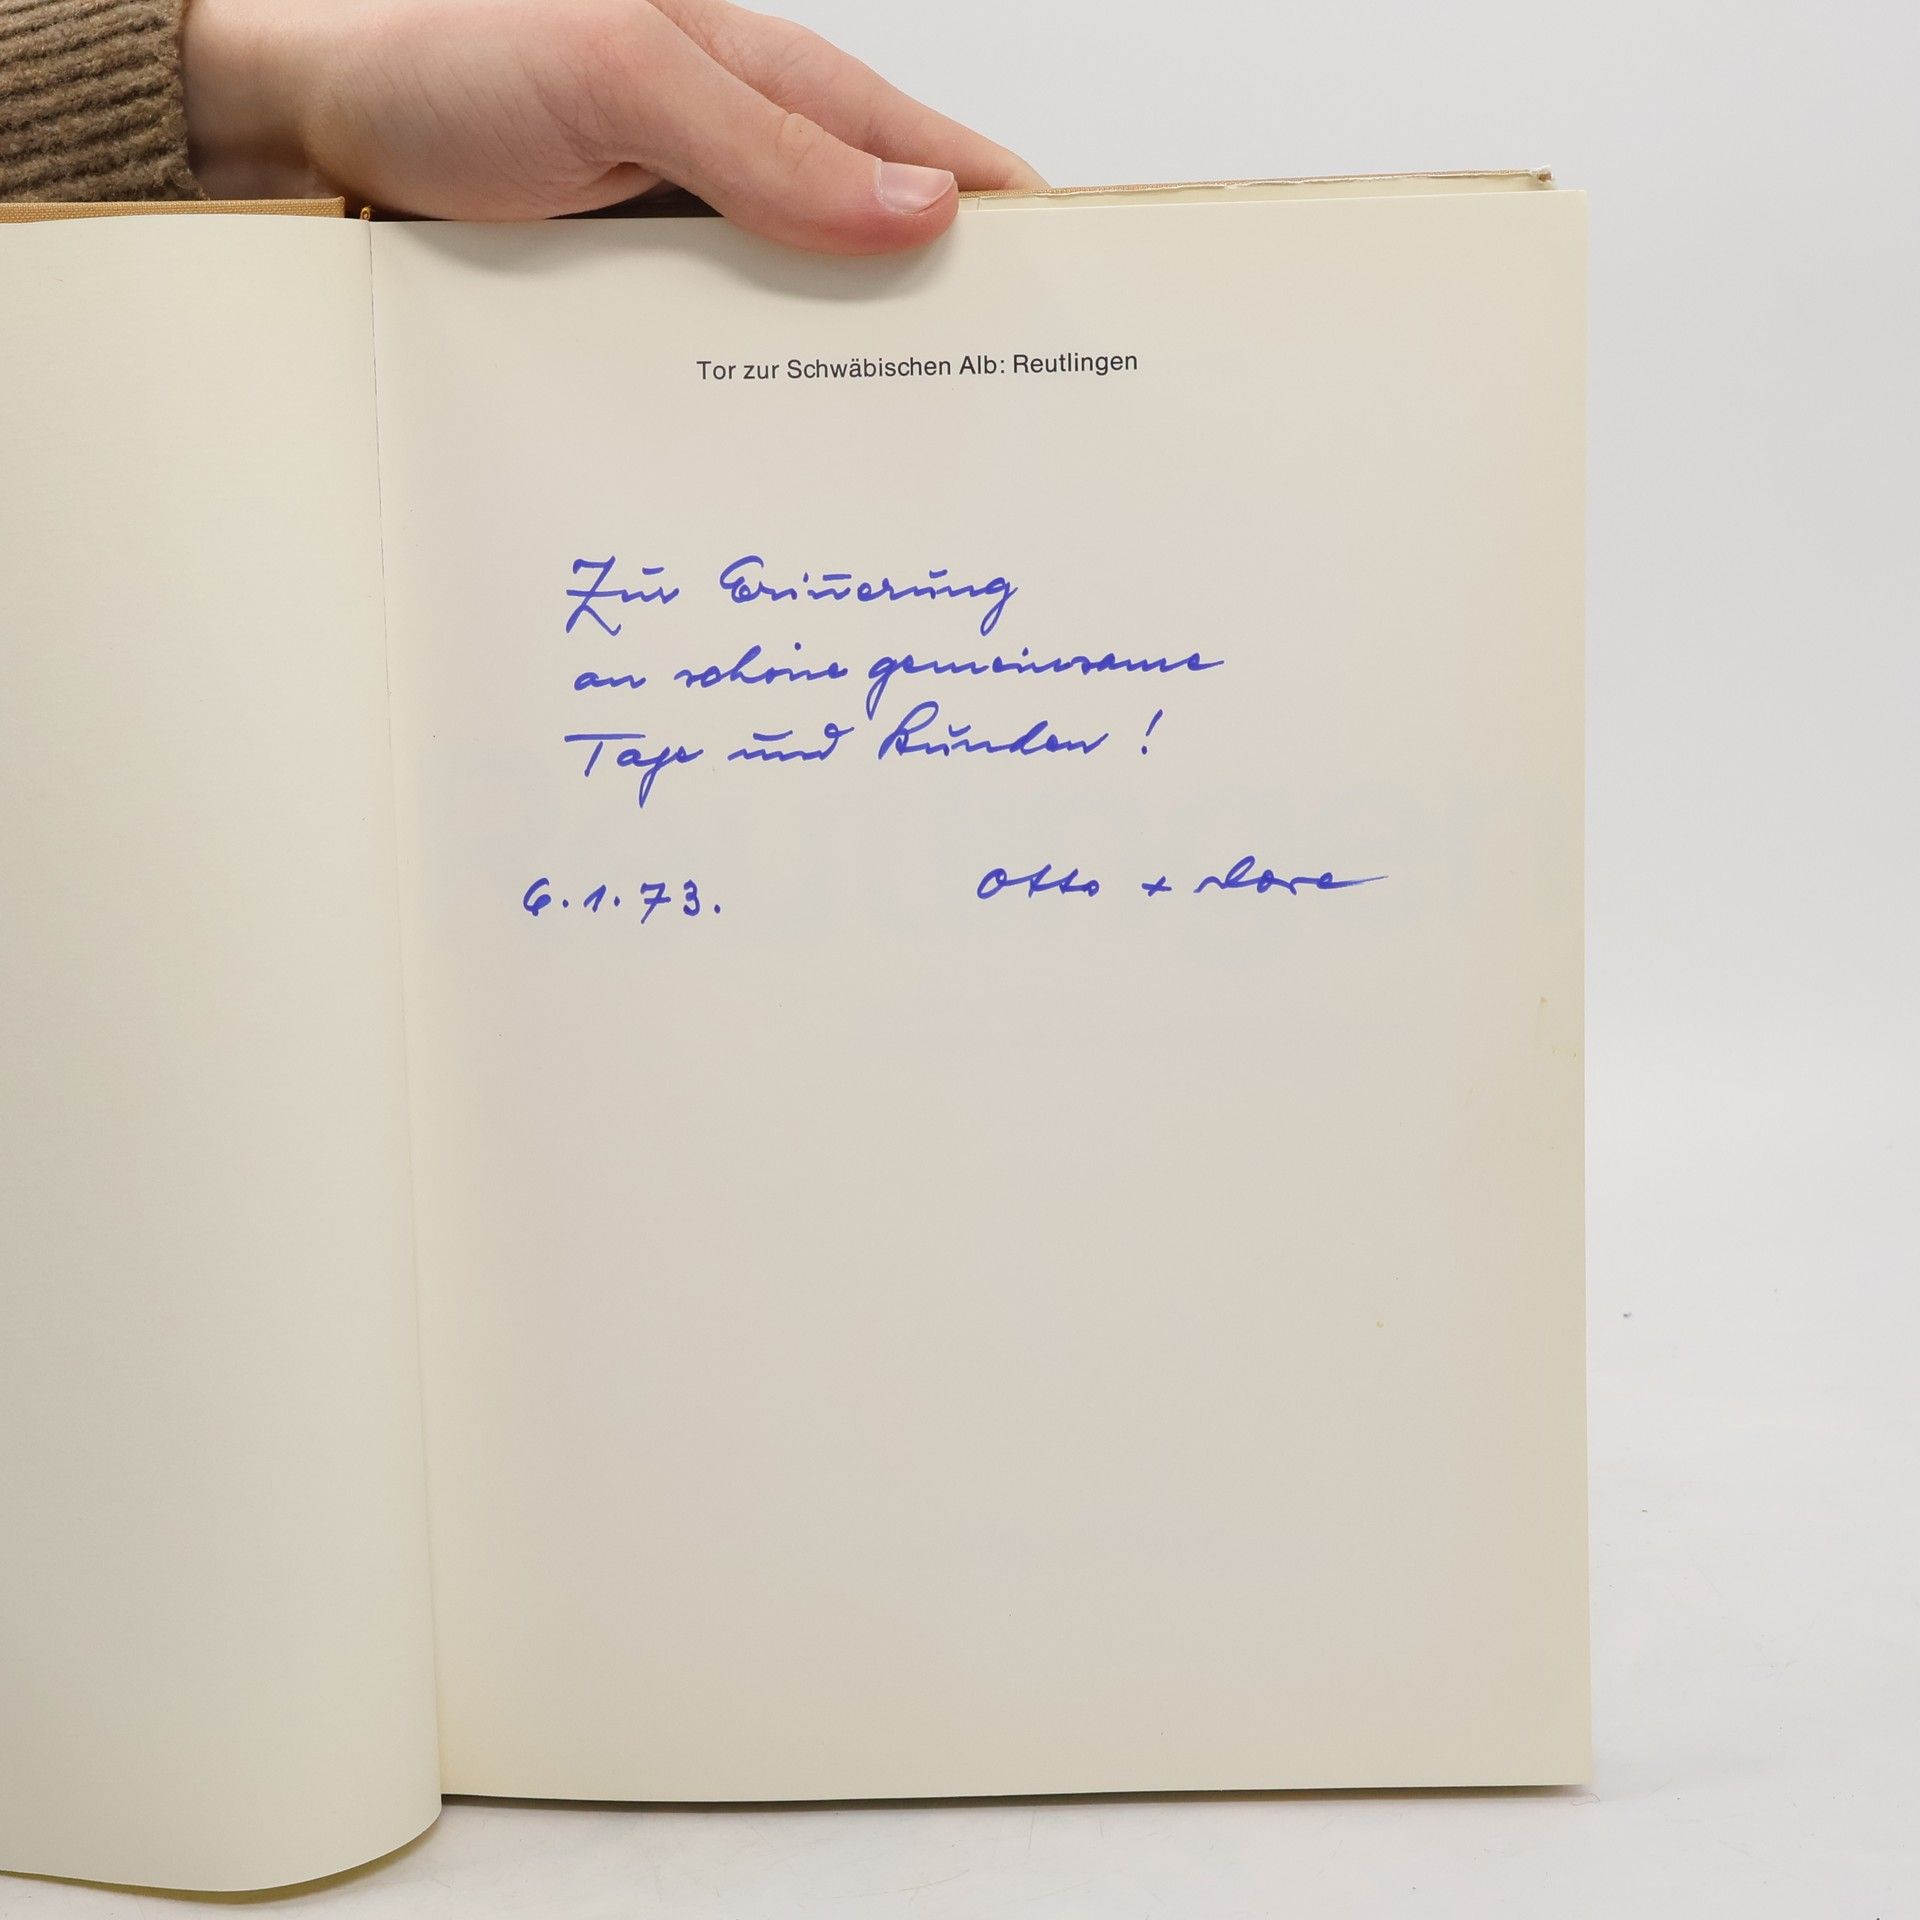 Tor zur Schwäbischen Alb: Reutlingen
Zur Erin̄erung
an schöne gemeinsame
Tage und Stunden!
6.1.73. Otto + Lore